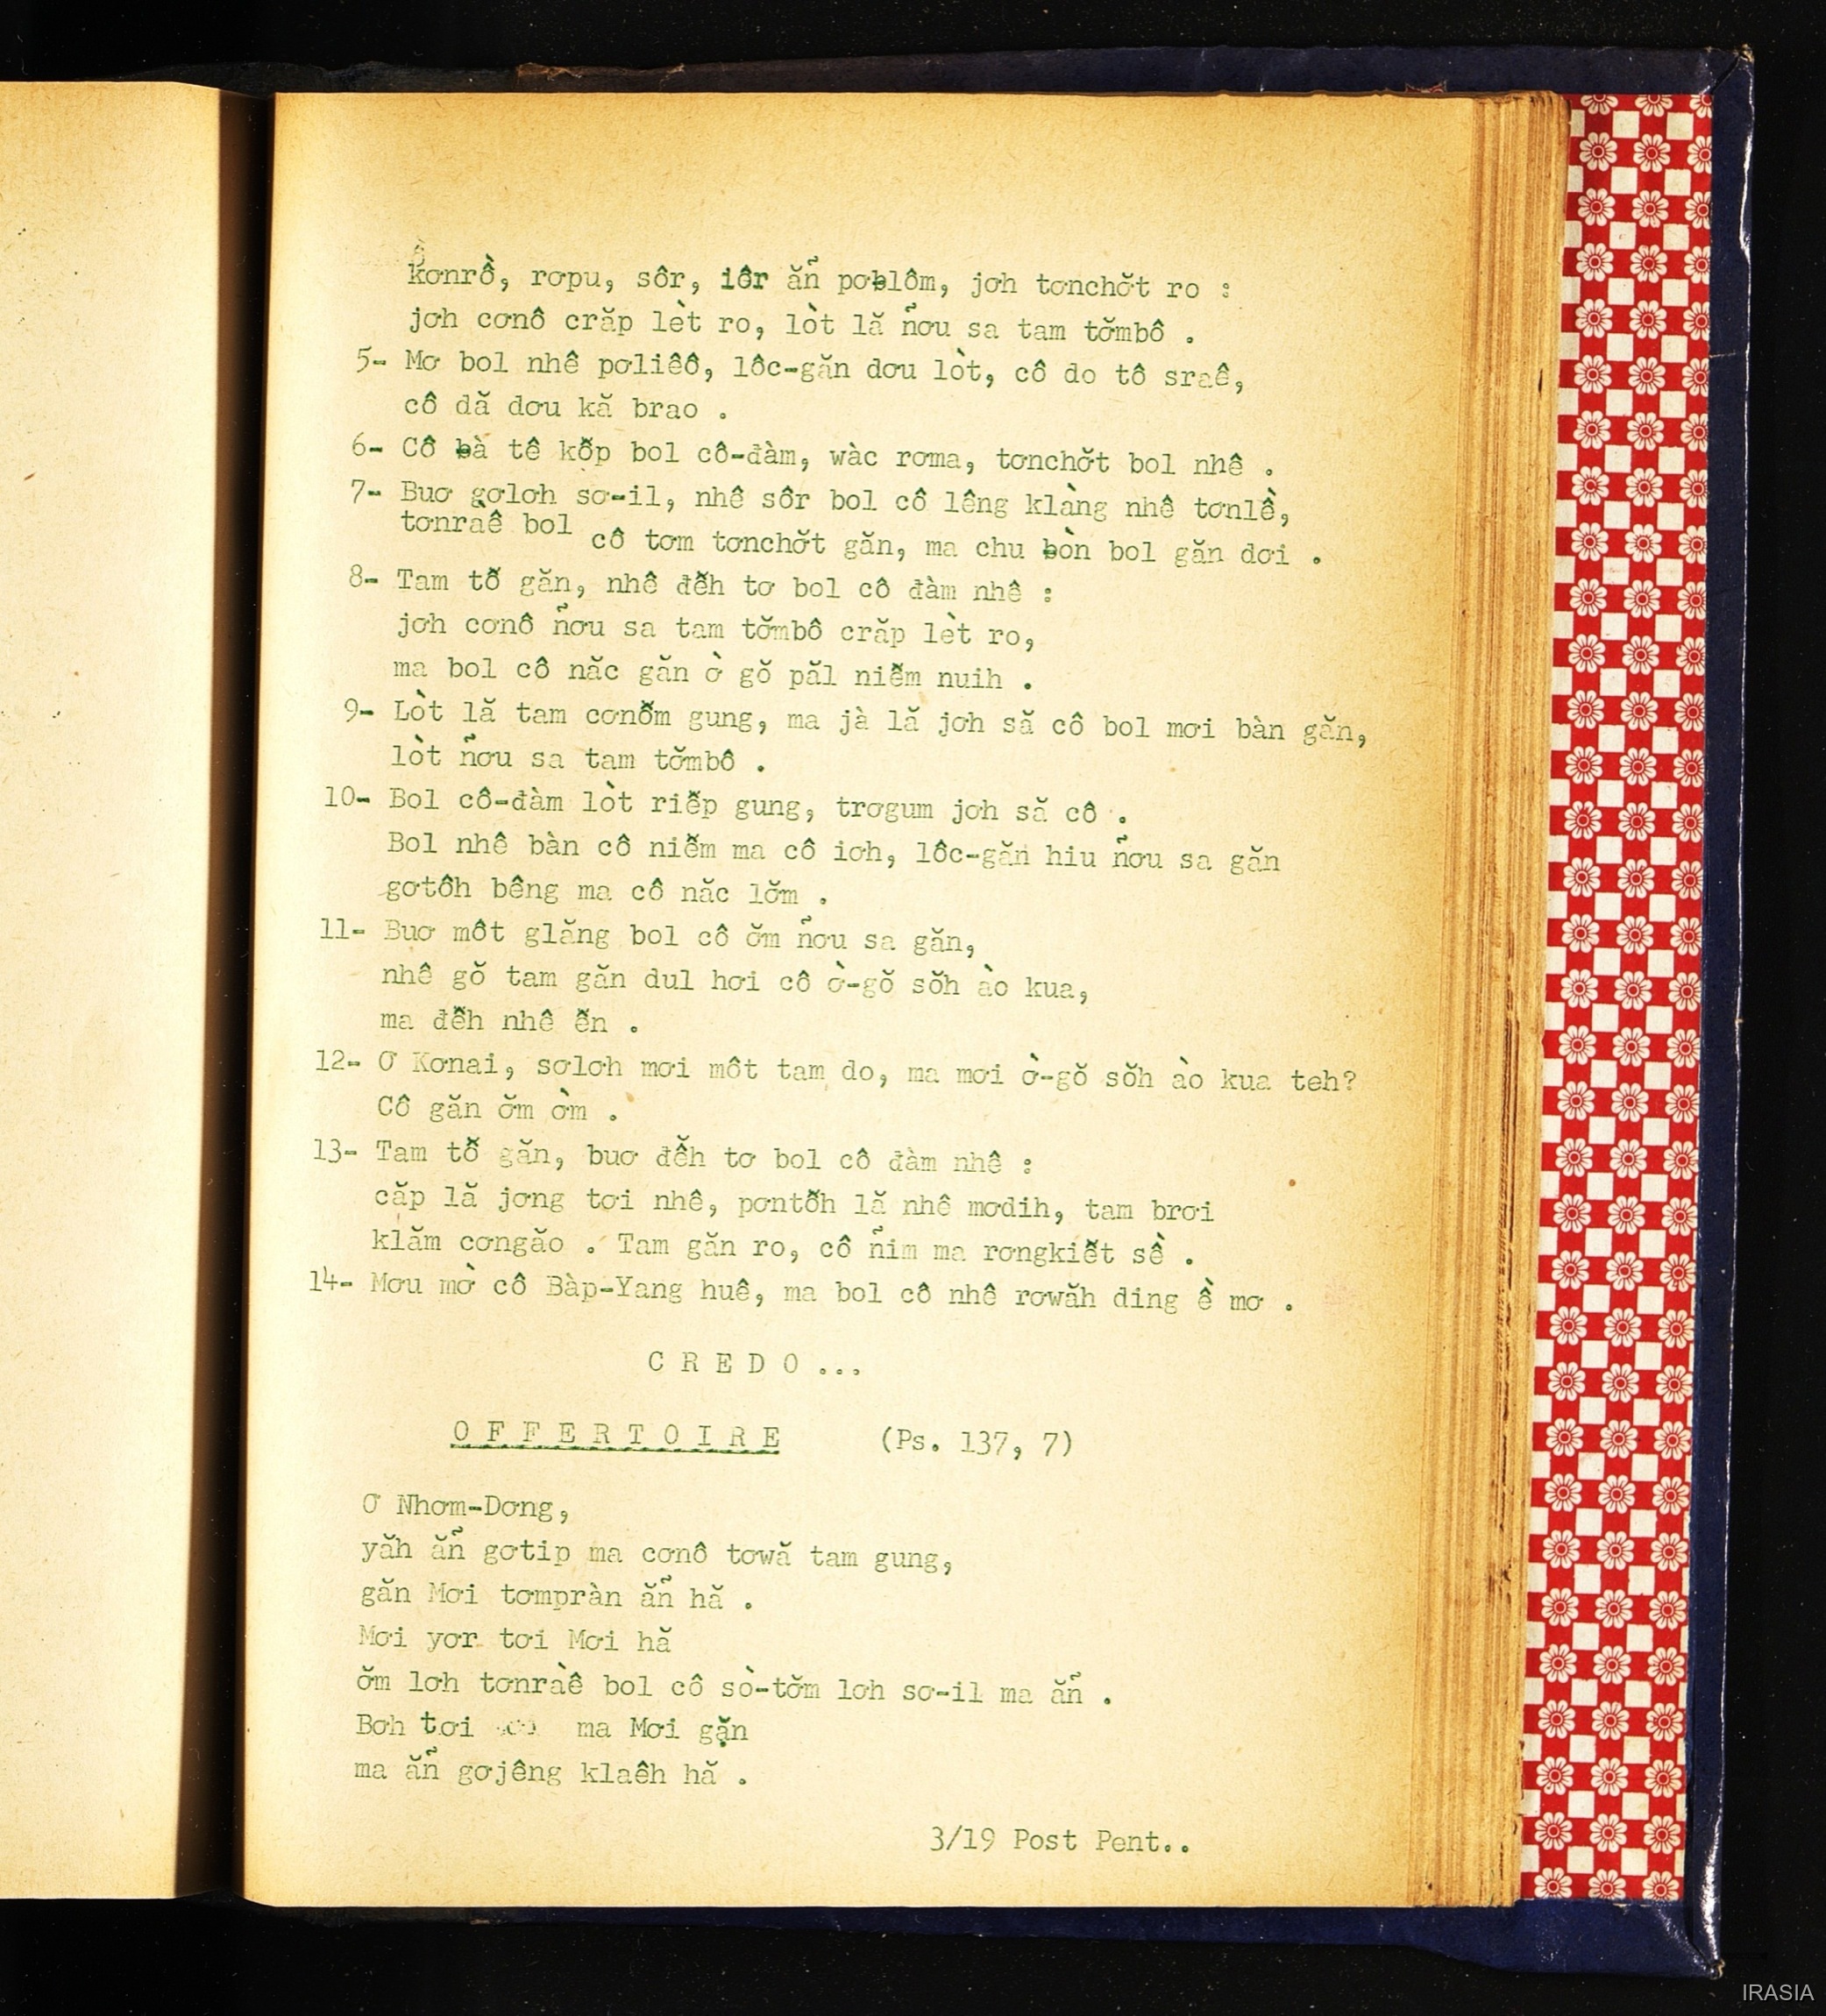 kơnrồ, rơpu, sôr, iêr ăñ pơƀlôm, jơh tơnchơ̆t ro :
jơh cơnô crăp lèt ro, lòt lă ñơu sa tam tơ̆mbô .
5- Mơ bol nhê pơliêô, lôc-găn dơu lòt, cô do tô sraê,
cô dă dơu kă brao .
6- Cô ƀà tê kỗp bol cô-đàm, wàc rơma, tơnchơ̆t bol nhê .
7- Buơ gơlơh sơ-il, nhê sôr bol cô lêng klàng nhê tơnlề,
tơnràê bol cô tơm tơnchơ̆t găn, ma chu ƀòn bol găn dơi .
8- Tam tỗ găn, nhê đễh tơ bol cô đàm nhê :
jơh cơnô ñơu sa tam tơ̆mbô crăp lèt ro,
ma bol cô năc găn ờ gŏ păl niễm nuih .
9- Lòt lă tam cơnỗm gung, ma jà lă jơh să cô bol mơi bàn găn,
lòt ñơu sa tam tơ̆mbô .
10- Bol cô-đàm lòt riễp gung, trơgum jơh să cô .
Bol nhê bàn cô niễm ma cô iơh, lôc-găn hiu ñơu sa găn
gơtôh bêng ma cô năc lơ̆m .
11- Buơ môt glăng bol cô ơ̆m ñơu sa găn,
nhê gŏ tam găn dul hơi cô ờ-gŏ sŏh ào kua,
ma đễh nhê ễn .
12- Ơ Kơnai, sơlơh mơi môt tam do, ma mơi ờ-gŏ sŏh ào kua teh?
Cô găn ơ̆m ờm .
13- Tam tỗ găn, buơ đễh tơ bol cô đàm nhê :
căp lă jơng tơi nhê, pơntỗh lă nhê mơdih, tam brơi
klăm cơngăo . Tam găn ro, cô ñim ma rơngkiễt sề .
14- Mơu mờ cô Bàp-Yang huê, ma bol cô nhê rơwăh ding ề mơ .
C R E D O ...
O F F E R T O I R E (Ps. 137, 7)
Ơ Nhơm-Dơng,
yăh ăñ gơtip ma cơnô tơwă tam gung,
găn Mơi tơmpràn ăñ hă .
Mơi yơr tơi Mơi hă
ơ̆m lơh tơnràê bol cô sò-tơ̆m lơh sơ-il ma ăñ .
Bơh tơi ma Mơi găn
ma ăñ gơjêng klaêh hă .
3/19 Post Pent..
IRASIA